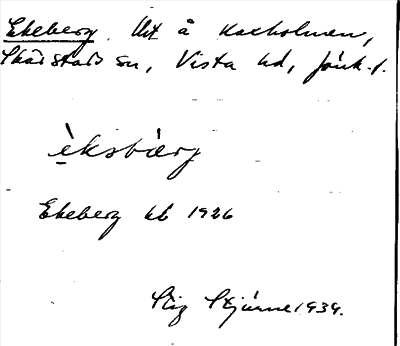 Ekeberg. Utt å Kaxholmen,
Skärstads sn, Vista hd, Jönk. l.
èksbærj
Ekeberg kb 1926
Stig Stjärne 1939.